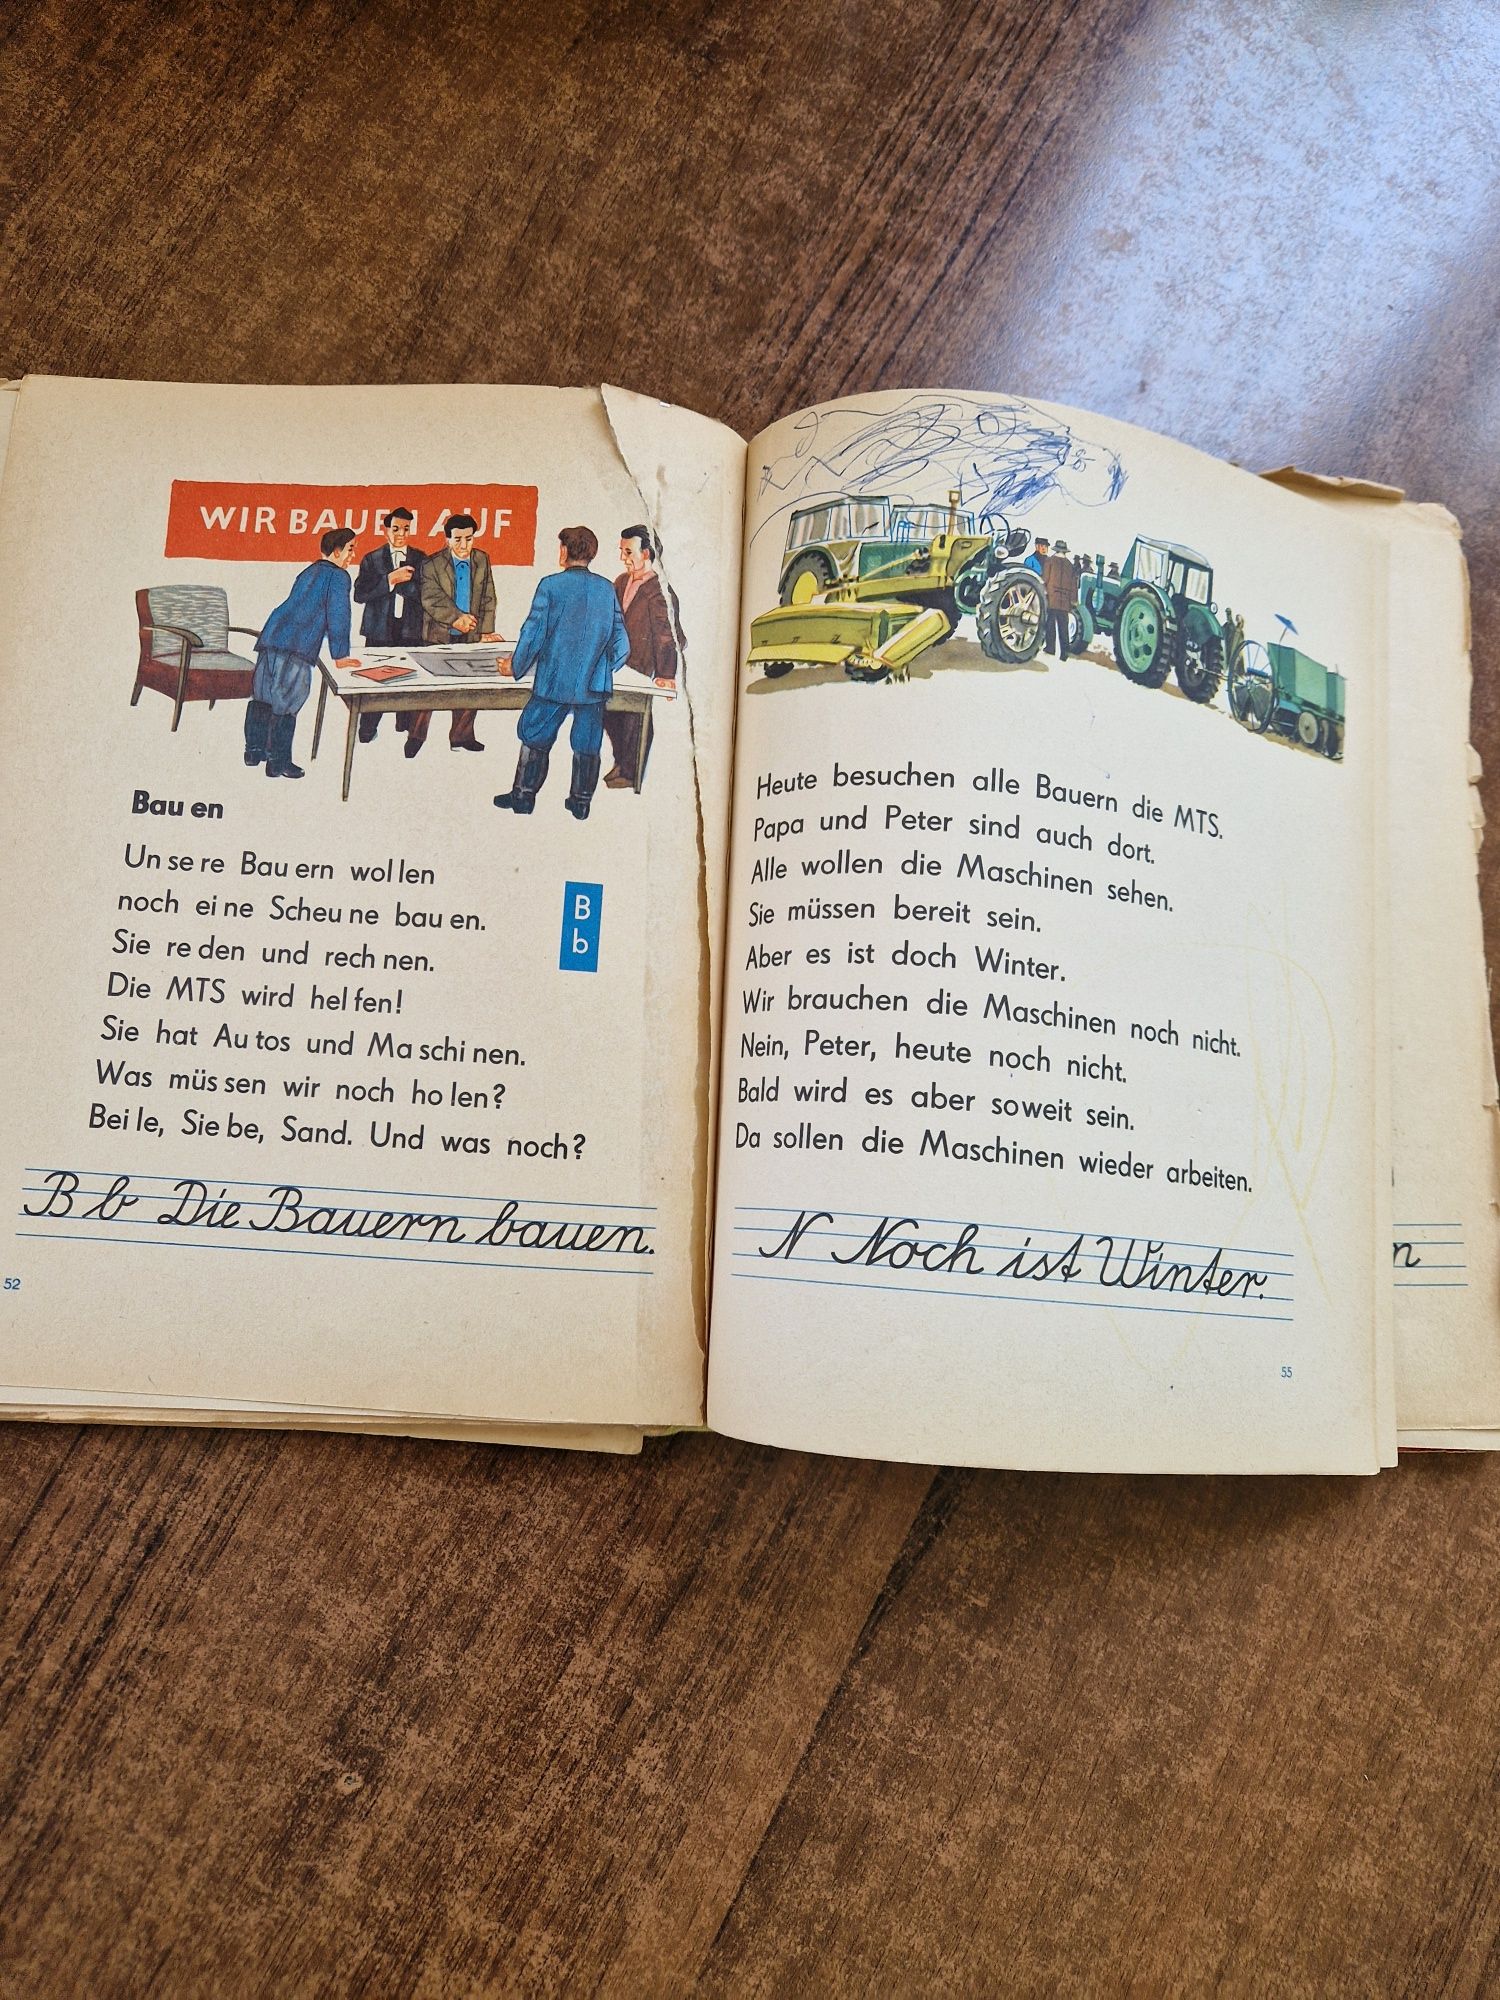 WIR BAUEN AUF
Bau en
Un se re Bau ern wol len
noch ei ne Scheu ne bau en.
Sie re den und rech nen.
Die MTS wird hel fen!
Sie hat Au tos und Ma schi nen.
Was müs sen wir noch ho len?
Bei le, Sie be, Sand. Und was noch?
B
b
B b Die Bauern bauen.
52
Heute besuchen alle Bauern die MTS.
Papa und Peter sind auch dort.
Alle wollen die Maschinen sehen.
Sie müssen bereit sein.
Aber es ist doch Winter.
Wir brauchen die Maschinen noch nicht.
Nein, Peter, heute noch nicht.
Bald wird es aber soweit sein.
Da sollen die Maschinen wieder arbeiten.
N Noch ist Winter.
55
n